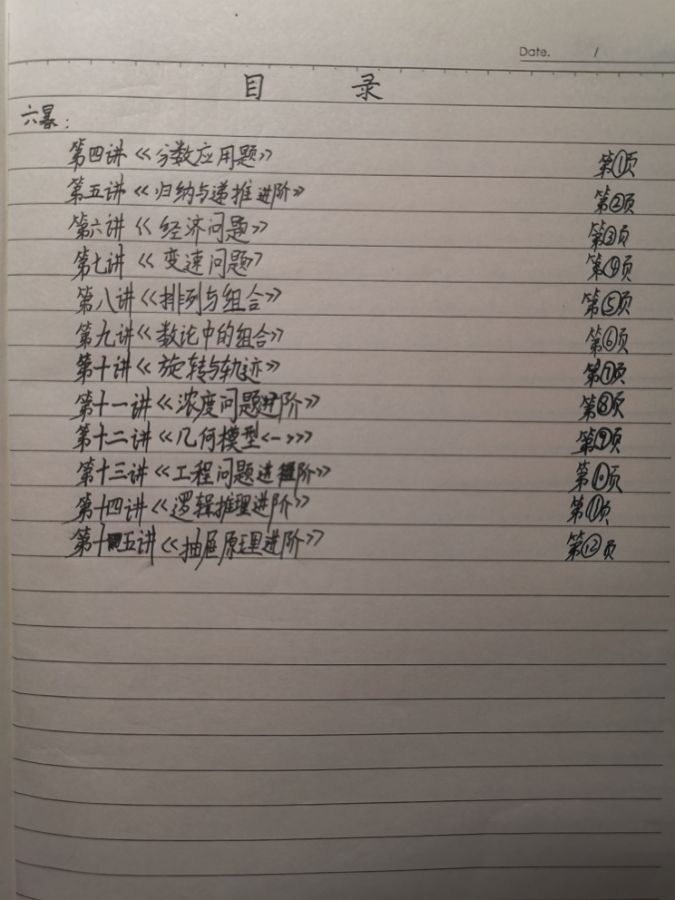 Date. /
目 录
六暴:
第四讲《分数应用题》 第①页
第五讲《归纳与递推进阶》 第②页
第六讲《经济问题》 第③页
第七讲《变速问题》 第④页
第八讲《排列与组合》 第⑤页
第九讲《数论中的组合》 第⑥页
第十讲《旋转与轨迹》 第⑦页
第十一讲《浓度问题进阶》 第⑧页
第十二讲《几何模型<一>》 第⑨页
第十三讲《工程问题进阶》 第⑩页
第十四讲《逻辑推理进阶》 第⑪页
第十五讲《抽屉原理进阶》 第⑫页